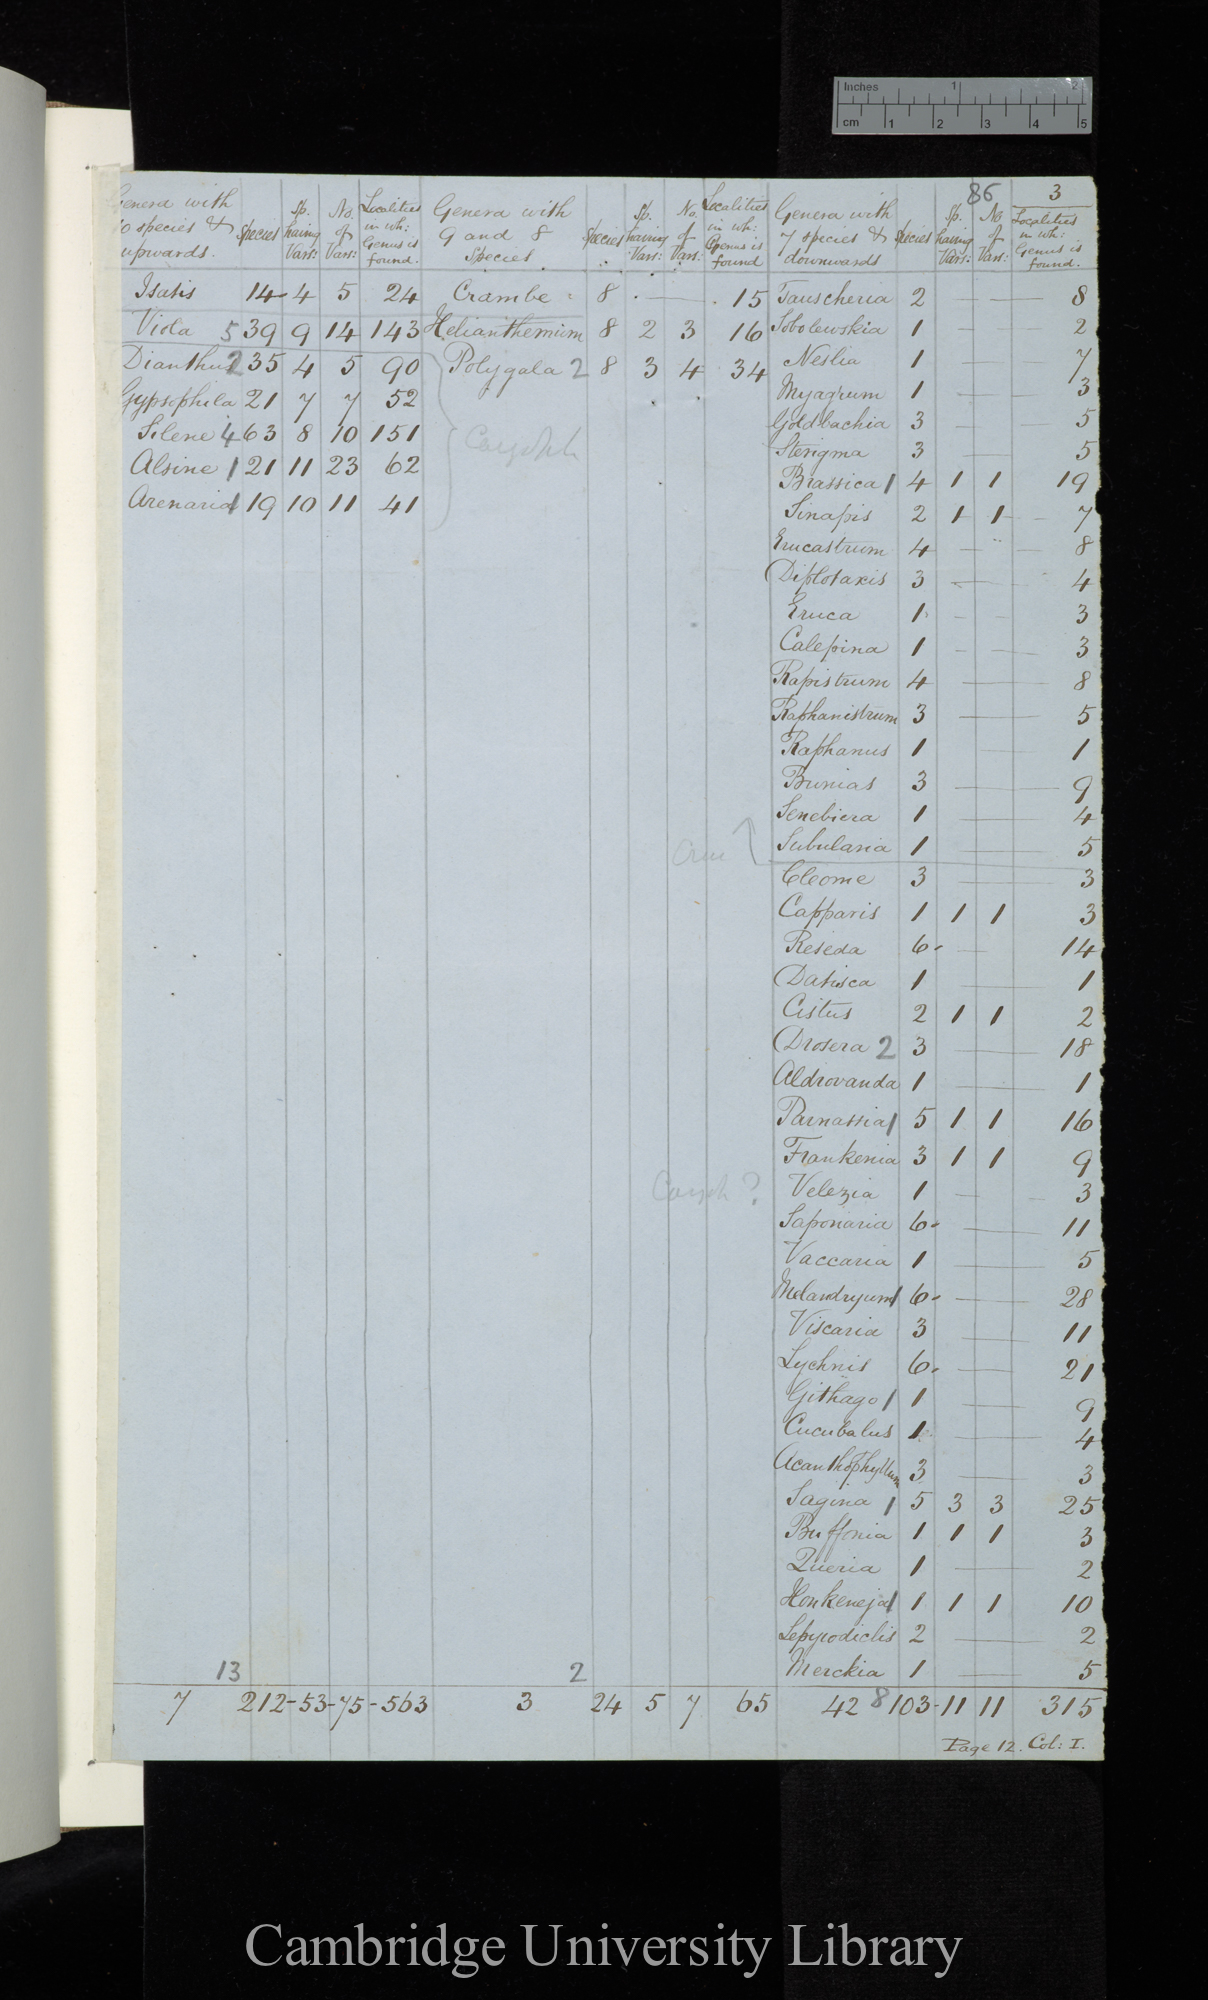 Inches 1 2
cm 1 2 3 4 5
86 3
Genera with 10 species & upwards. | Species | Sp. having Vars: | No. of Vars: | Localities in wh: Genus is found. | Genera with 9 and 8 Species | Species | Sp. having Vars: | No. of Vars: | Localities in wh: Genus is found | Genera with 7 species & downwards | Species | Sp. having Vars: | No of Vars: | Localities in wh: Genus is found.
Isatis 14 - 4 5 24 Crambe 8 . — . 15 Tauscheria 2 — — 8
Viola 5 39 9 14 143 Helianthemium 8 2 3 16 Sobolewskia 1 - — 2
Dianthus 2 35 4 5 90 Polygala 2 8 3 4 34 Neslia 1 — — 7
Gypsophila 21 7 7 52 Myagrum 1 — — 3
Silene 4 63 8 10 151 Caryoph Goldbachia 3 — — 5
Alsine 1 21 11 23 62 Sterigma 3 — 5
Arenaria 1 19 10 11 41 Brassica 1 4 1 1 19
Sinapis 2 1 1 - 7
Erucastrum 4 - — 8
Diplotaxis 3 - — 4
Eruca 1 - - 3
Calepina 1 - — 3
Rapistrum 4 - — 8
Raphanistrum 3 — — 5
Raphanus 1 — 1
Bunias 3 — — 9
Senebiera 1 — — 4
Subularia 1 — — 5
Cru
Cleome 3 — — 3
Capparis 1 1 1 3
Reseda 6 - — 14
Datisca 1 — — 1
Cistus 2 1 1 2
Drosera 2 3 — — 18
Aldrovanda 1 — — 1
Parnassia 1 5 1 1 16
Frankenia 3 1 1 9
Caryoh ? Velezia 1 — - 3
Saponaria 6 - — — 11
Vaccaria 1 — — 5
Melandryum 1 6 - — — 28
Viscaria 3 — — 11
Lychnis 6 - — — 21
Githago 1 1 — — 9
Cucubalus 1 — — 4
Acanthophyllum 3 — — 3
Sagina 1 5 3 3 25
Buffonia 1 1 1 3
Queria 1 — — 2
Honkeneja 1 1 1 1 10
Lepyrodiclis 2 — — 2
Merckia 1 — — 5
13 2
7 212 - 53 - 75 - 563 3 24 5 7 65 42 8 103 - 11 11 315
Page 12. Col: I.
Cambridge University Library